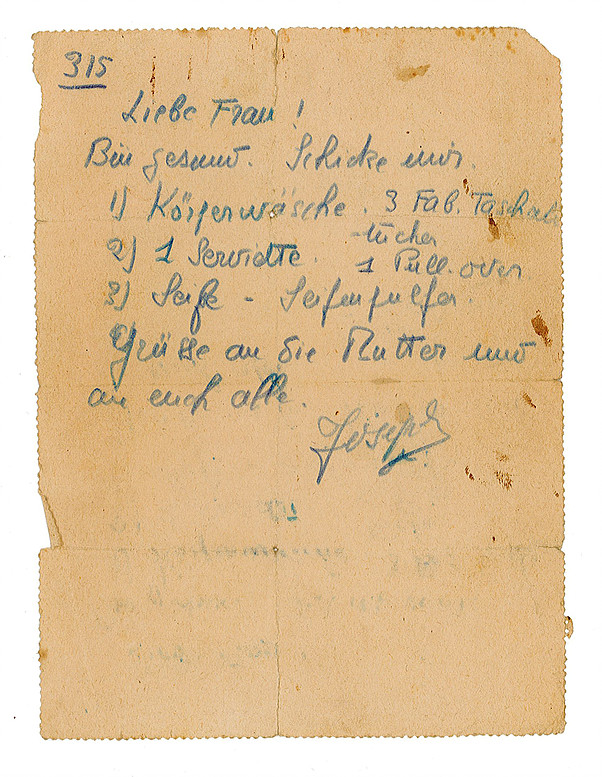 315
Liebe Frau!
Bin gesund. Schicke mir.
1) Körperwäsche. 3 Fab. Taschen
-tücher
2) 1 Serviette. 1 Pull.over
3) Seife - Seifenpulfer.
Grüsse an die Mutter und
an euch alle.
Joseph